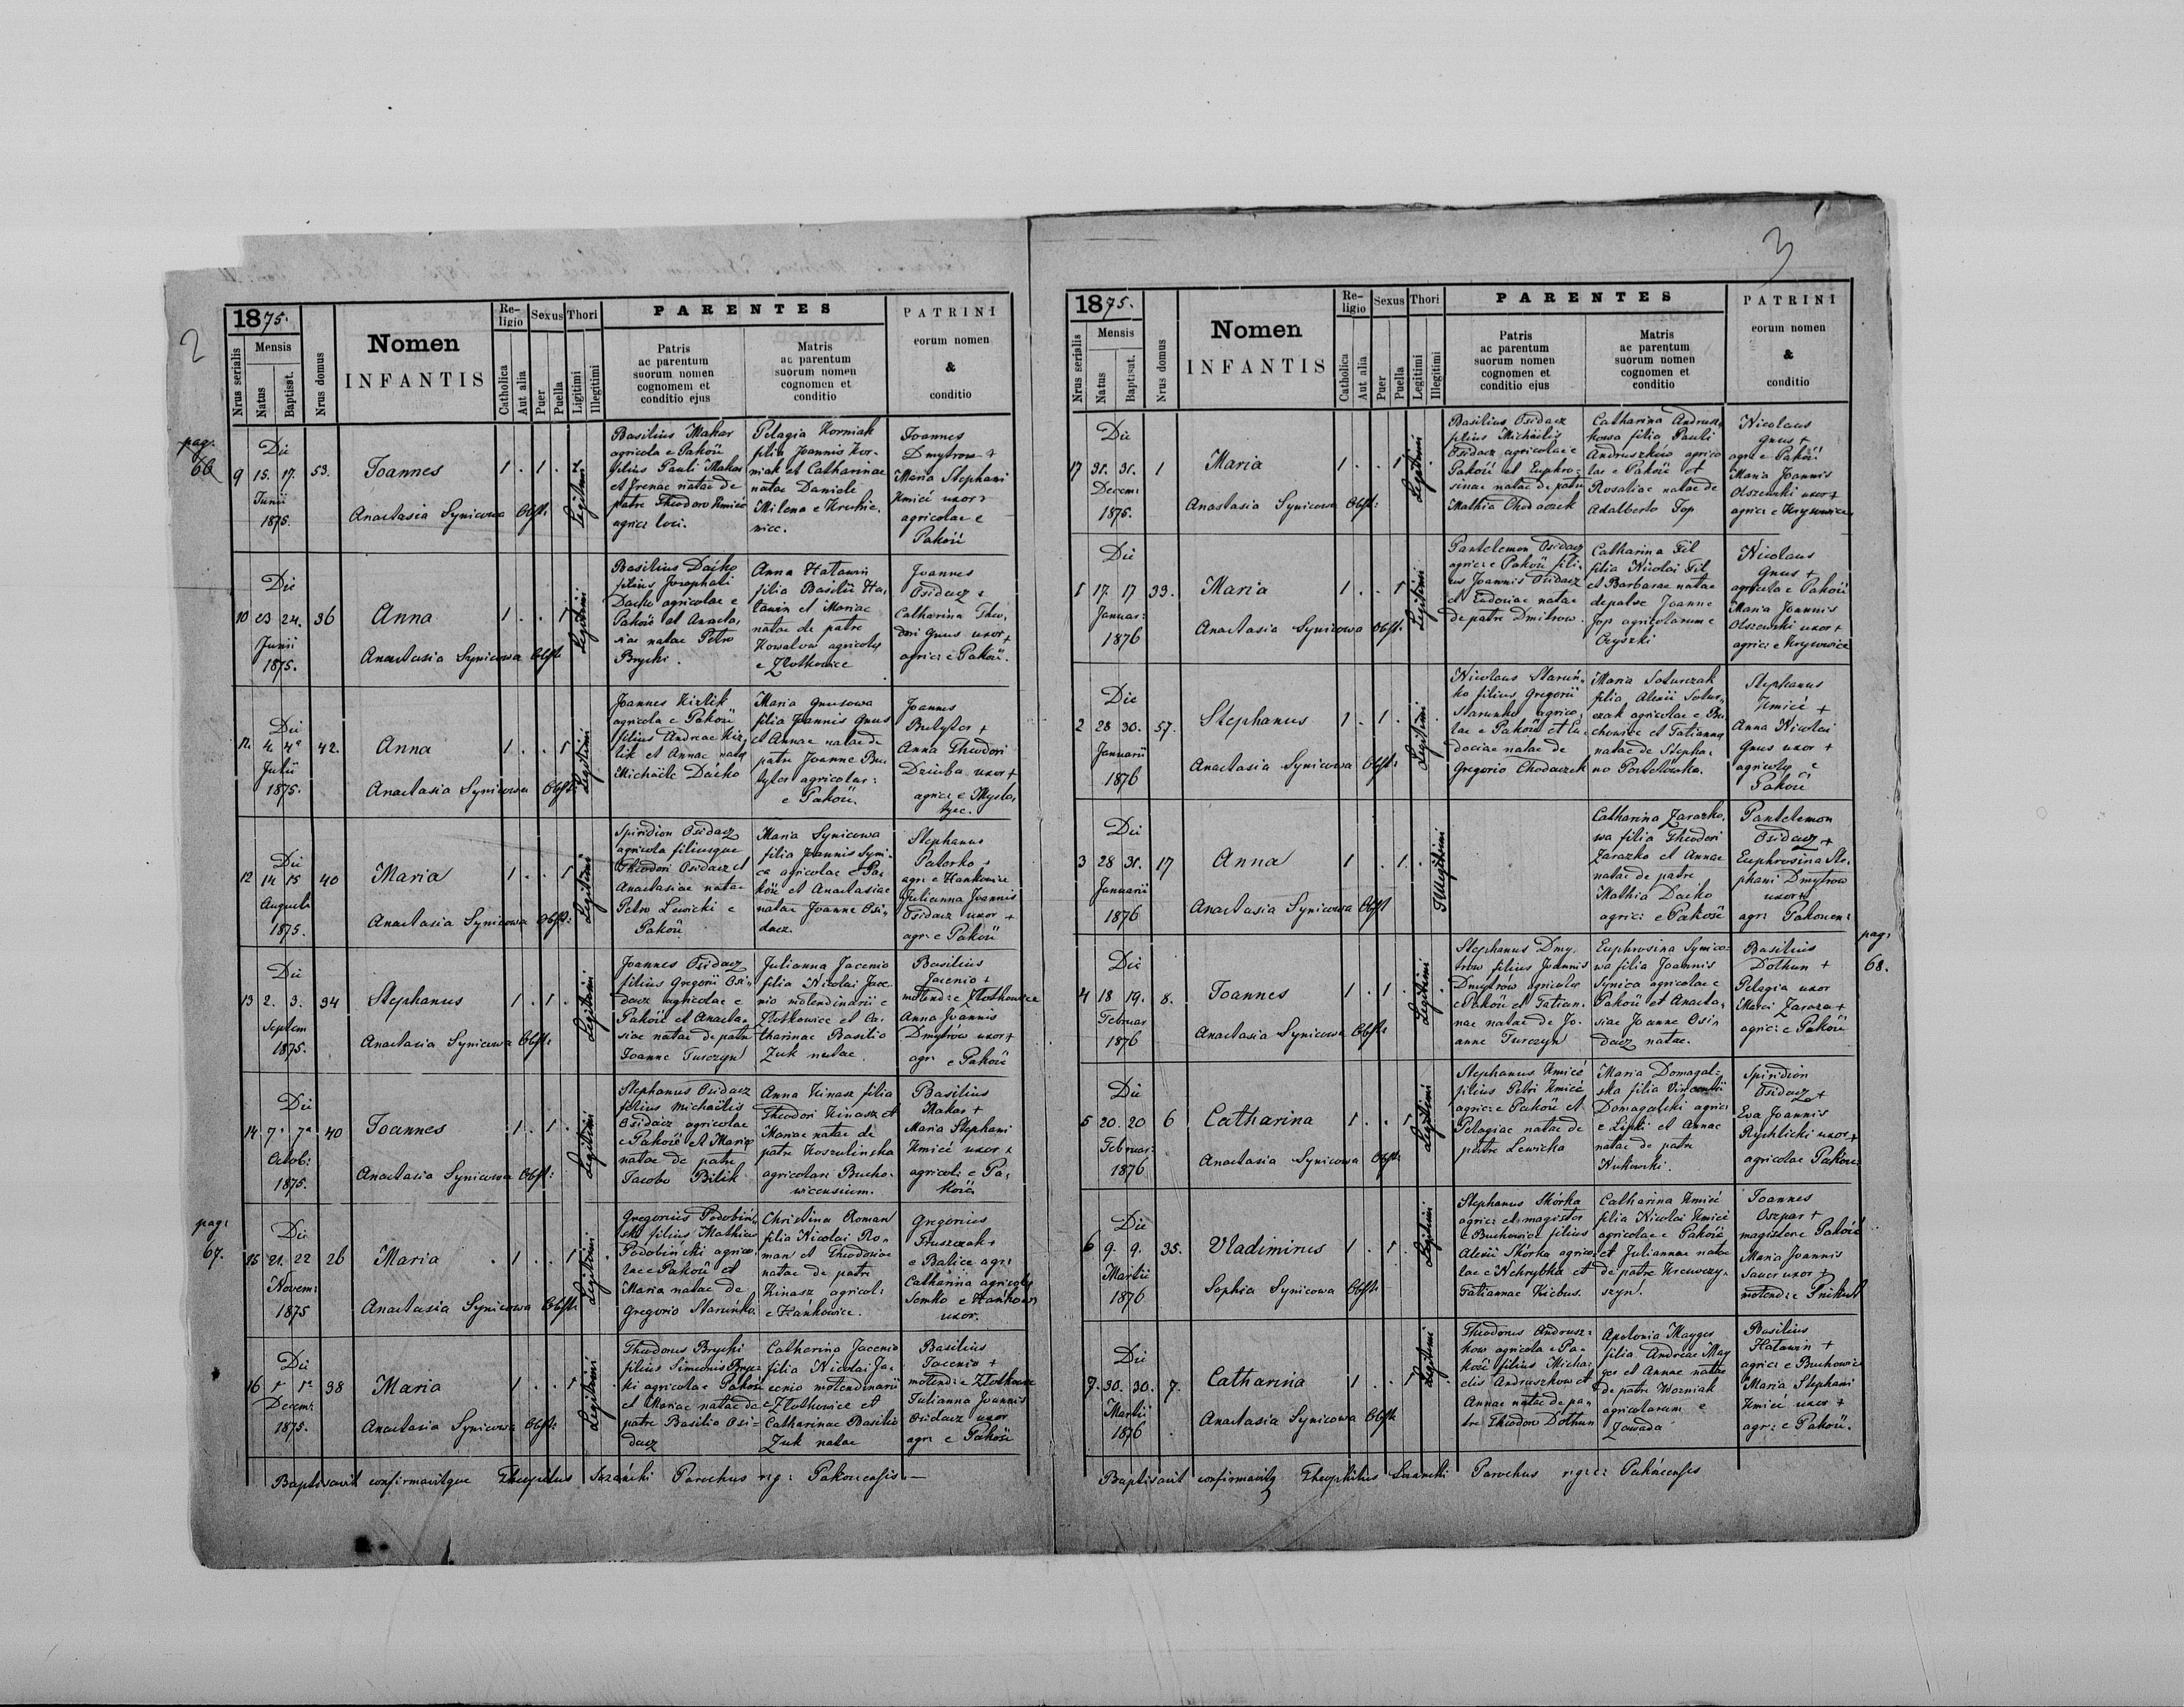 2
pag.
66
1875.
Nrus serialis
Mensis
Natus
Baptisat.
Nrus domus
Nomen
INFANTIS
Re-
ligio
Catholica
Aut alia
Sexus
Puer
Puella
Thori
Ligitimi
Illegitimi
PARENTES
Patris
ac parentum
suorum nomen
cognomem et
conditio ejus
Matris
ac parentum
suorum nomen
cognomen et
conditio
PATRINI
eorum nomen
&
conditio
Die
9 15. 17. 53.
Junii
1875.
Joannes
Anastasia Synicowa Obst:
1 . 1 .
Legitimi
Basilius Makar
agricola e Pakość
filius Pauli Makar
et Irenae natae de
patre Theodoro Kmieć
agric: loci.
Pelagia Korniak
filia Joannis Kor-
niak et Catharinae
natae Daniele
Milena e
Joannes
Dmytrow +
Maria Stephani
Kmieć uxor +
agricolae e
Pakość
Die
10 23 24. 36
Junii
1875.
Anna
Anastasia Synicowa Obst:
1 . . 1
Legitimi
Basilius Daćko
filius Josephati
Daćko agricolae e
Pakość et Anasta-
siae natae Petro
Brycki.
Anna Hatawin
filia Basilii Ha-
tawin et Mariae
natae de patre
Kowalow agricolis
e Złotkowice
Joannes
Osidacz +
Catharina Theo-
dori Gnus uxor +
agric: e Pakość.
Die
11. 4. 4ª 42.
Julii
1875.
Anna
Anastasia Synicowa Obst:
1 . . 1
Legitimi
Joannes Kizlik
agricola e Pakość
filius Andreae Kiz-
lik et Annae natae
Michaele Daćko
Maria Gnusowa
filia Joannis Gnus
et Annae natae de
patre Joanne Bu-
tyter agricolae:
e Pakość.
Joannes
Butyter +
Anna Theodori
Dziuba uxor +
agric: e Mysla-
tycz.
Die
12 14 15 40
Augusti
1875.
Maria
Anastasia Synicowa Obst:
1 . . 1
Legitimi
Spiridion Osidacz
agricola filiusque
Theodori Osidacz et
Anastasiae natae
Petro Lewicki e
Pakość
Maria Synicowa
filia Joannis Syni-
ca agricolae e Pa-
kość et Anastasiae
natae Joanne Osi-
dacz.
Stephanus
Patorko
agr: e Hankowice
Julianna Joannis
Osidacz uxor +
agr: e Pakość
Die
13 2. 3. 34
Septem
1875.
Stephanus
Anastasia Synicowa Obst:
1 . 1 .
Legitimi
Joannes Osidacz
filius Gregorii Osi-
dacz agricolae e
Pakość et Anasta-
siae natae de patre
Joanne Turczyn
Julianna Jacenio
filia Nicolai Jace-
nio molendinarii e
Złotkowice et Ca-
tharinae Basilio
Zuk natae
Basilius
Jacenio +
molend: e Złotkowice
Anna Joannis
Dmytrów uxor +
agr: e Pakość
Die
14 7ª 7ª 40
Octob:
1875.
Joannes
Anastasia Synicowa Obst:
1 . 1 .
Legitimi
Stephanus Osidacz
filius Michaëlis
Osidacz agricolae
e Pakość et Mariae
natae de patre
Jacobo Bilik
Anna Kinasz filia
Theodori Kinasz et
Mariae natae de
patre Koszulinska
agricolar: Bucho-
wicensium.
Basilius
Makar +
Maria Stephani
Kmieć uxor +
agricoli e Pa-
kość
pag:
67.
Die
15 21. 22 26
Novem:
1875
Maria
Anastasia Synicowa Obst:
1 . . 1
Legitimi
Gregorius Podobin-
ski filius Mathiae
Podobiński agrico-
lae e Pakość et
Maria natae de
Gregorio Staruńko.
Christina Roman
filia Nicolai Ro-
man et Theodosiae
natae de patre
Kinasz agricol:
e Hańkowice.
Gregorius
Truszczak +
e Balice agr:
Catharina agricolis
Semko e Hańkowi
uxor.
Die
16 1ª 1ª 38
Decem:
1875.
Maria
Anastasia Synicowa Obst:
1 . . 1
Legitimi
Theodorus Brycki
filius Simeonis Bryc-
ki agricolae Pakość
et Mariae natae de
patre Basilio Osi-
dacz
Catharina Jacenio
filia Nicolai Ja-
cenio molendinarii
e Złotkowice et
Catharinae Basilio
Zuk natae
Basilius
Jacenio +
molend: e Złotkowice
Julianna Joannis
Osidacz uxor
agr: e Pakość
Baptisavit confirmavitque Theophilus Parochus r: g: Pakoscensis
3
1875.
Nrus serialis
Mensis
Natus
Baptisat.
Nrus domus
Nomen
INFANTIS
Re-
ligio
Catholica
Aut alia
Sexus
Puer
Puella
Thori
Legitimi
Illegitimi
PARENTES
Patris
ac parentum
suorum nomen
cognomen et
conditio ejus
Matris
ac parentum
suorum nomen
cognomen et
conditio
PATRINI
eorum nomen
&
conditio
Die
17 31. 31. 1
Decem:
1875.
Maria
Anastasia Synicowa Obst:
1 . . 1
Legitimi
Basilius Osidacz
filius Michaëlis
Osidacz agricolae e
Pakość et Euphro-
sinae natae de patre
Mathia Chodaczek
Catharina Andrusz-
kowa filia Pauli
Andruszków agrico-
lae e Pakość et
Rosaliae natae de
Adalberto Top
Nicolaus
Gnus +
agr: e Pakość
Maria Joannis
Olszewski uxor +
agric: e Krysowice
Die
1 17. 17 33.
Januar:
1876
Maria
Anastasia Synicowa Obst:
1 . . 1
Legitimi
Pantelemon Osidacz
agric: e Pakość fili-
us Joannis Osidacz
et Eudoxiae natae
de patre Dmitrow.
Catharina Fil
filia Nicolai Fil
et Barbarae natae
de patre Joanne
Jop agricolarum e
Czyszki
Nicolaus
Gnus +
agricola e Pakość
Maria Joannis
Olszewski uxor +
agric: e Krysowice
Die
2 28 30. 57.
Januarii
1876
Stephanus
Anastasia Synicowa Obst:
1 . 1 .
Legitimi
Nicolaus Staruń-
ko filius Gregorii
Starunko agrico-
lae e Pakość et Eu-
dociae natae de
Gregorio Chodaczek
Maria Soturczak
filia Alexii Sotur-
czak agricolae e Bu-
chowice et Tatianna
natae de Stepha-
no
Stephanus
Kmieć +
Anna Nicolai
Gnus uxor +
agricolis e
Pakość
Die
3 28 31. 17
Januarii
1876
Anna
Anastasia Synicowa Obst
1 . 1.
Illegitimi
Catharina Zarazko-
wa filia Theodori
Zarazko et Annae
natae de patre
Mathia Daćko
agric: e Pakość
Pantelemon
Osidacz +
Euphrosina Ste-
phani Dmytrow
uxor +
agr: Pakoscen:
pag:
68.
Die
4 18 19. 8.
Februar
1876
Joannes
Anastasia Synicowa Obst:
1 . 1 .
Legitimi
Stephanus Dmy-
trow filius Joannis
Dmytrów agricolis
e Pakość et Tatian-
nae natae de Jo-
anne Turczyn
Euphrosina Synico-
wa filia Joannis
Synica agricolae e
Pakość et Anasta-
siae Joanne Osi-
dacz natae.
Basilius
Dothun +
Pelagia uxor
Marci Zaraza +
agric: e Pakość
Die
5 20. 20 6
Februar:
1876
Catharina
Anastasia Synicowa Obst:
1 . . 1
Legitimi
Stephanus Kmieć
filius Petri Kmieć
agric: e Pakość et
Pelagiae natae de
patre Lewicka
Maria Domagal-
ska filia Vincentii
Domagalski agric:
e Lipki et Annae
natae de patre
Spiridion
Osidacz +
Eva Joannis
Rychlicki uxor +
agricolae Pakość
Die
6 9. 9. 35.
Martii
1876
Vladimirus
Sophia Synicowa Obst:
1 . 1 .
Legitimi
Stephanus Skórka
agric: et magister
e Buchowice filius
Alexii Skórka agrico-
lae e Nehrybka et
Tatiannae Kiebus.
Catharina Kmieć
filia Nicolai Kmieć
agricolae e Pakość
et Juliannae natae
de patre Krewczy-
szyn.
Joannes
Oszpar +
magister e Pakość
Maria Joannis
Saucr uxor +
molend: e Pnikut
Die
7. 30. 30. 7.
Martii
1876
Catharina
Anastasia Synicowa Obst:
1 . . 1
Legitimi
Theodorus Andrusz-
kow agricola e Pa-
kość filius Micha-
elis Andruszkow et
Annae natae de pa-
tre Theodoro Dothun
Apolonia Mayger
filia Andreae May-
ger et Annae natae
de patre Wozniak
agricolarum e
Zawada
Basilius
Hatawin +
agric: e Buchowice
Maria Stephani
Kmieć uxor +
agr: e Pakość.
Baptisavit confirmavitq Theophilus Parochus r: g: c: Pakoscensis